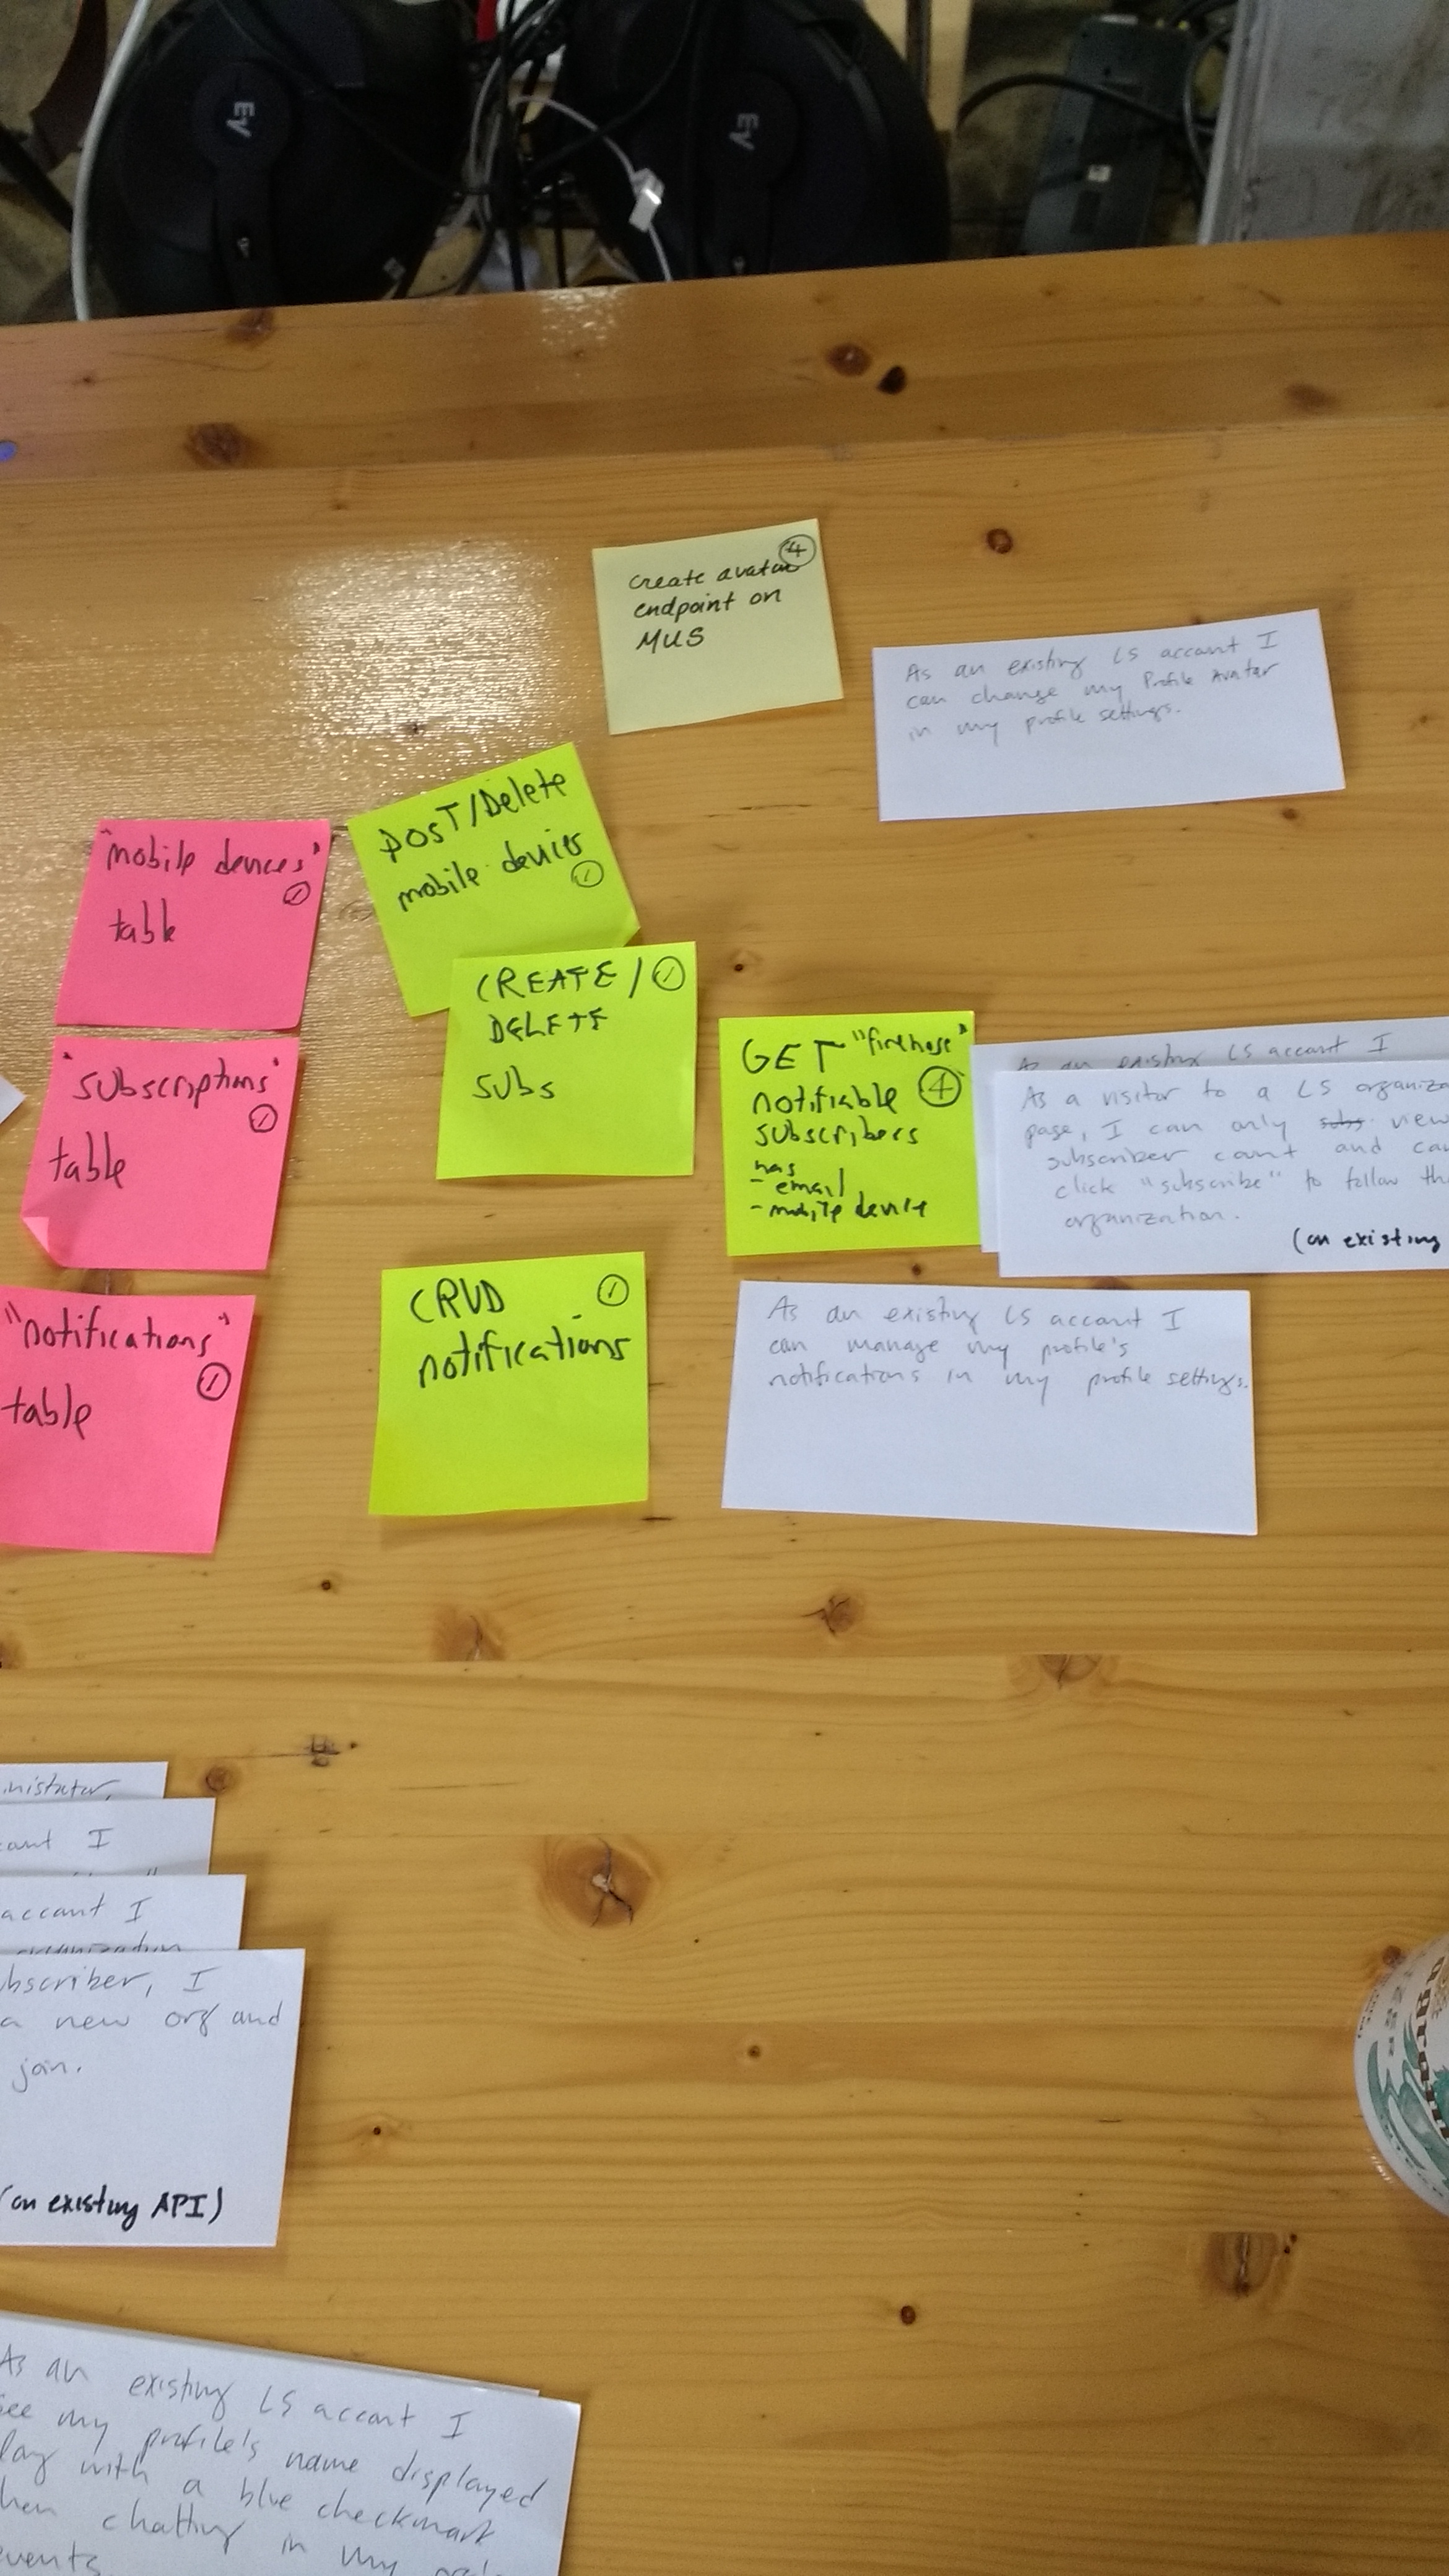 EV
EV
create avatar
4
endpoint on
MUS
As an existing LS account I
can change my Profile Avatar
in my profile settings.
POST/Delete
mobile devices
1
"mobile devices"
1
table
CREATE/
1
DELETE
subs
"subscriptions"
1
table
GET "firehose"
notifiable
4
subscribers
has
- email
- mobile device
As an existing LS account I
As a visitor to a LS organiza
page, I can only subs view
subscriber count and can
click "subscribe" to follow th
organization.
(on existing
"notifications"
1
table
CRUD
1
notifications
As an existing LS account I
can manage my profile's
notifications in my profile settings.
inistrator,
ount I
account I
organization
bscriber, I
a new org and
join.
(on existing API)
As an existing LS account I
see my profile's name displayed
lay with a blue checkmark
hen chatting in my
events